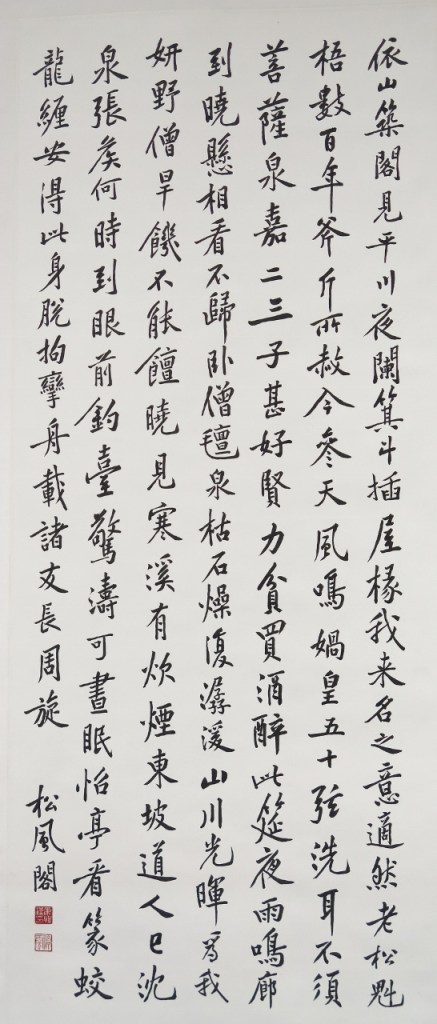 依山築閣見平川夜闌箕斗插屋椽我来名之意適然老松魁
梧數百年斧斤所赦今參天風鳴媧皇五十弦洗耳不須
菩薩泉嘉二三子甚好賢力貧買酒醉此筵夜雨鳴廊
到曉懸相看不歸卧僧氈泉枯石燥復潺湲山川光暉為我
妍野僧旱饑不能饘曉見寒溪有炊煙東坡道人已沈
泉張侯何時到眼前釣臺驚濤可晝眠怡亭看篆蛟
龍纏安得此身脫拘攣舟載諸友長周旋
松風閣